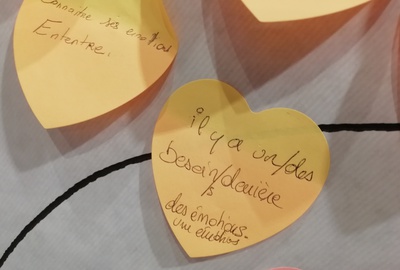 connaitre ses emotions
Ententre.
il y a un/des
besoin/derrière
s
des émotions.
une émotions